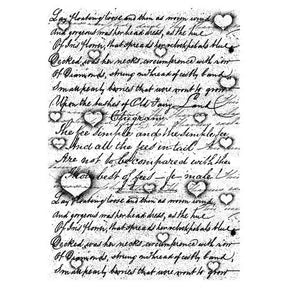 Lay floating loose and thin as morn wind
And gorgeous was her head dress, as the hue
Of Iris flower, that spreads her petals blue
Decked, was her neck's circumference with row
Of Diamonds, strung on thread of costly band
Small pearly berries that were wont to grow
Upon the bushes of Old Fairy Land
Epigram
The fee simple and the simple fee
And all the fees in tail
Are not to be compared with thee
Thou best of fees - fe male
Lay floating loose and thin as morn wind
And gorgeous was her head dress, as the hue
Of Iris flower, that spreads her petals blue
Decked, was her neck's circumference with row
Of Diamonds, strung on thread of costly band
Small pearly berries that were wont to grow